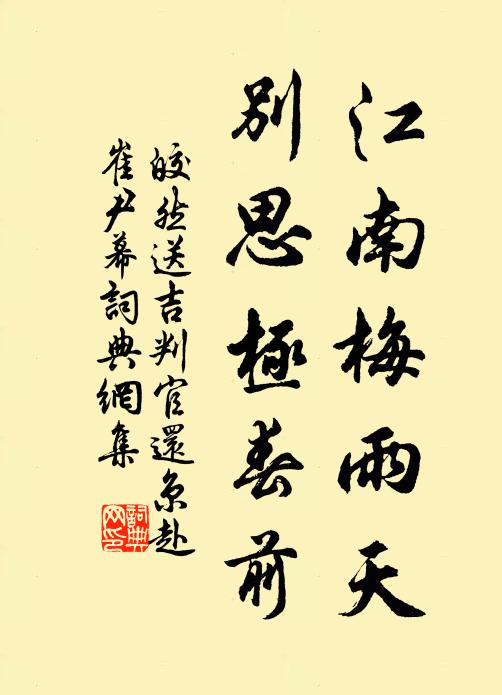 江南梅雨天
別思極春前
皎然送吉判官還京赴
崔尹幕詞典網集
詞典
网印